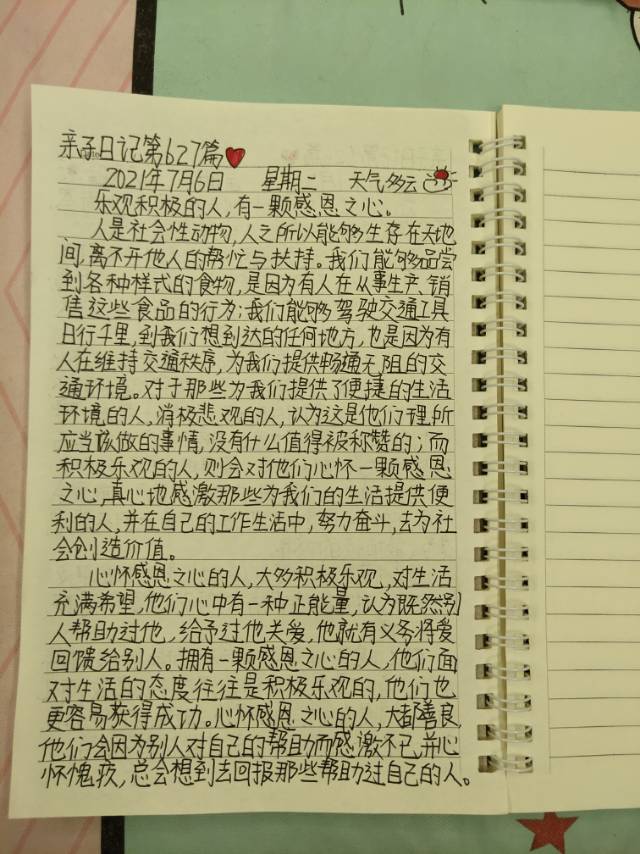 亲子日记第627篇
2021年7月6日 星期二 天气多云
乐观积极的人,有一颗感恩之心。
人是社会性动物,人之所以能够生存在天地
间,离不开他人的帮忙与扶持。我们能够品尝
到各种样式的食物,是因为有人在从事生产、销
售这些食品的行为;我们能够驾驶交通工具
日行千里,到我们想到达的任何地方,也是因为有
人在维持交通秩序,为我们提供畅通无阻的交
通环境。对于那些为我们提供了便捷的生活
环境的人,消极悲观的人,认为这是他们理所
应当该做的事情,没有什么值得被称赞的;而
积极乐观的人,则会对他们心怀一颗感恩
之心,真心地感激那些为我们的生活提供便
利的人,并在自己的工作生活中,努力奋斗,去为社
会创造价值。
心怀感恩之心的人,大多积极乐观,对生活
充满希望,他们心中有一种正能量,认为既然别
人帮助过他,给予过他关爱,他就有义务将爱
回馈给别人。拥有一颗感恩之心的人,他们面
对生活的态度往往是积极乐观的,他们也
更容易获得成功。心怀感恩之心的人,大都善良
他们会因为别人对自己的帮助而感激不已,并心
怀愧疚,总会想到去回报那些帮助过自己的人。